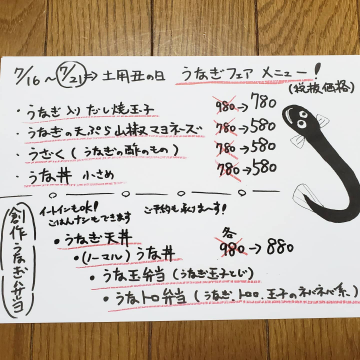 7/16～7/21⇒土用丑の日 うなぎフェアメニュー!
(税抜価格)
・うなぎ入りだし焼玉子 980→780
・うなぎの天ぷら山椒マヨネーズ 780→580
・うざく(うなぎの酢のもの) 780→580
・うな丼 小さめ 780→580
創作うなぎ弁当
イートインもOK! ご予約も承りまーす!
ごはんナシもできます
・うなぎ天丼 各
・(ノーマル)うな丼 980→880
・うな玉弁当(うなぎ玉子とじ)
・うなトロ弁当(うなぎ、トロロ、玉子のネバネバ系)